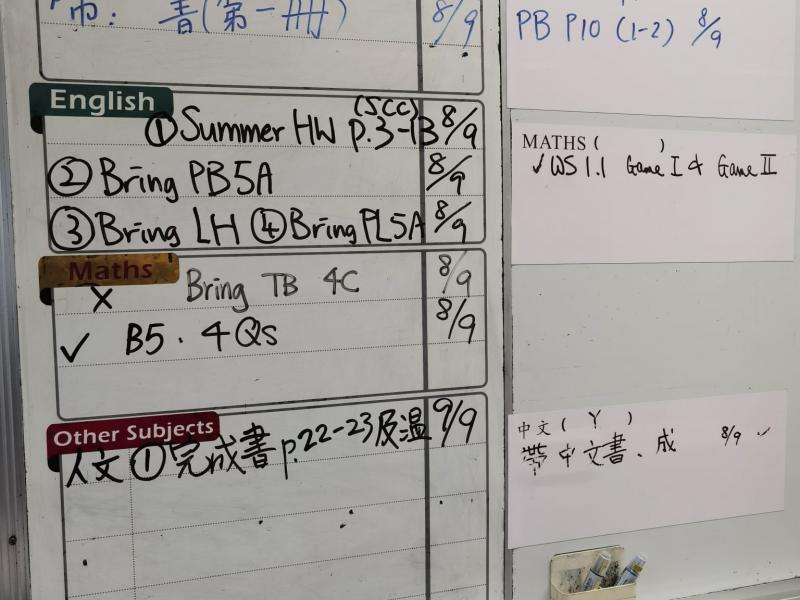 帶： 書(第一冊) 8/9
English
①Summer HW (SCC) p.3-13 8/9
②Bring PB5A 8/9
③Bring LH ④Bring PL5A 8/9
Maths
x Bring TB 4C 8/9
✓ B5. 4Qs 8/9
Other Subjects
人文 ①完成書p.22-23及溫 9/9
PB P10 (1-2) 8/9
MATHS ( )
✓WS 1.1 Game I & Game II
中文 ( Y )
帶中文書、成 8/9 ✓